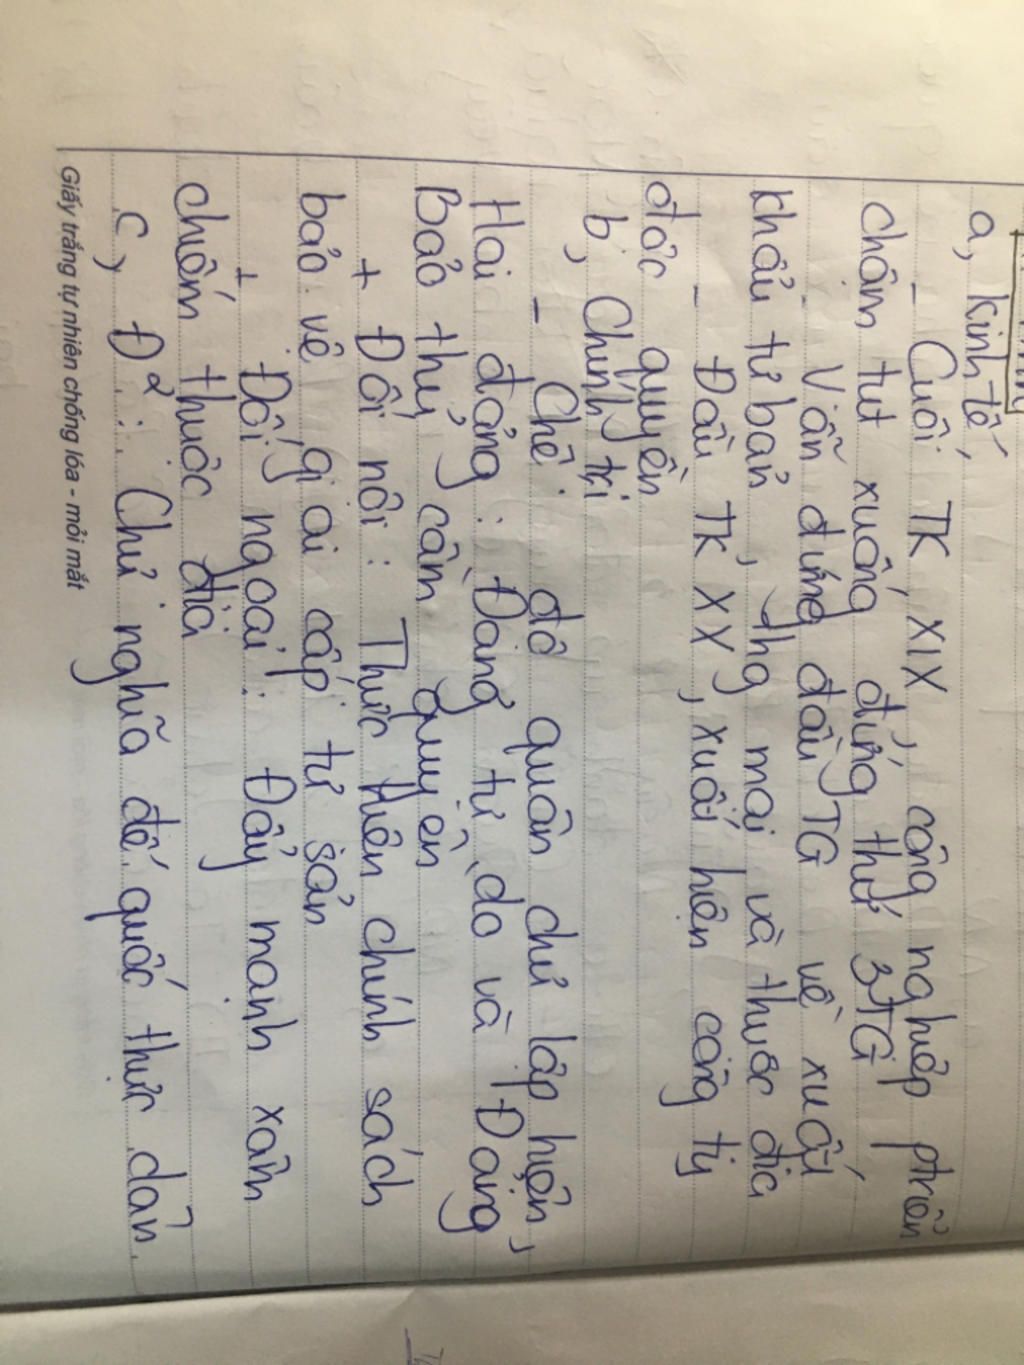 a, Kinh tế
- Cuối TK XIX, công nghiệp phát triển
chậm tụt xuống đứng thứ 3TG
- Vẫn đứng đầu TG về xuất
khẩu tư bản, thg mại và thuộc địa
- Đầu TK XX, xuất hiện công ty
độc quyền
b, Chính trị
- Chế độ quân chủ lập hiến,
Hai đảng: Đảng tự do và Đảng
Bảo thủ cầm quyền
+ Đối nội: Thực hiện chính sách
bảo vệ giai cấp tư sản
+ Đối ngoại: Đẩy mạnh xâm
chiếm thuộc địa
c, Đ²: Chủ nghĩa đế quốc thực dân.
Giấy trắng tự nhiên chống lóa - mỏi mắt